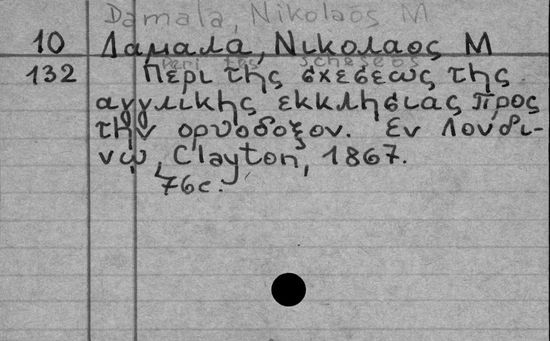 Damala, Nikolaos M
10 Δαμαλά, Νικολαος Μ
peri tes scheseos
132 Περι της σχεσεως της
αγγλικης εκκλησιας προς
την ορυοδοξον. Εν Λονδι-
νῳ, Clayton, 1867.
76c.